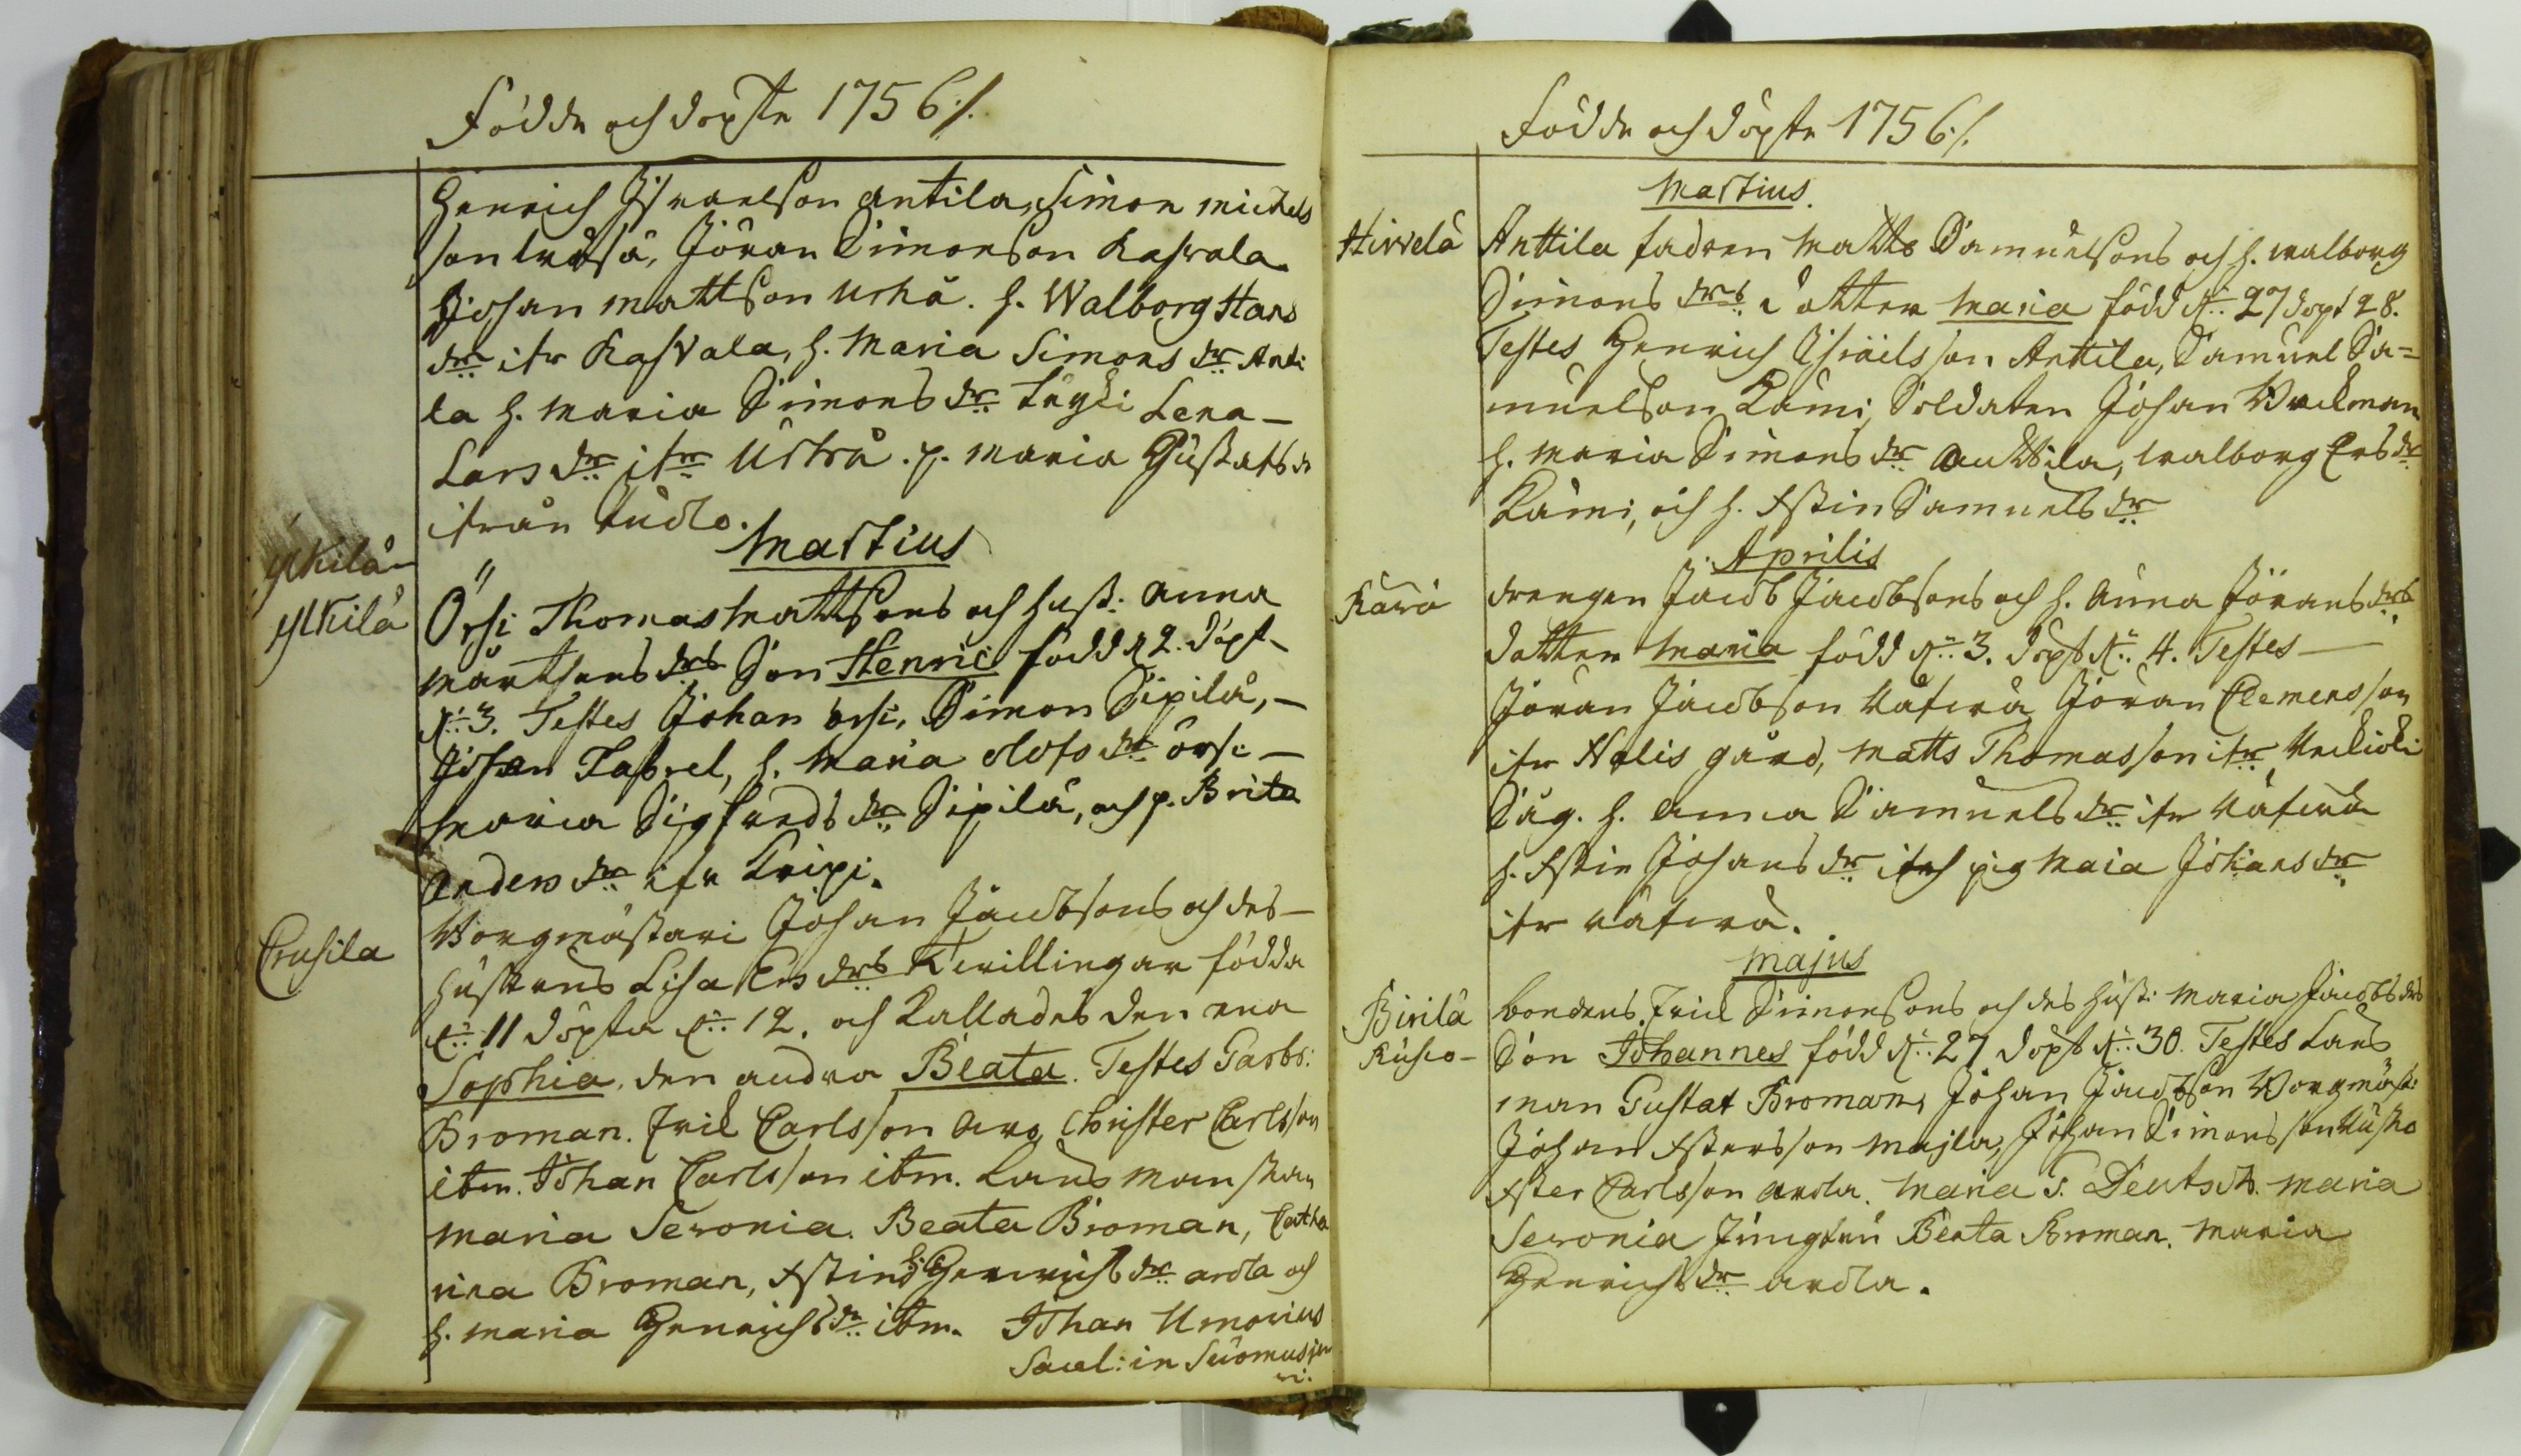 Födde och döpte 1756 ./.
Henrich Israelson Antila, Simon Michels
son, Jöran Simonson Kaswala
Johan Mattson Urha. h. Walborg Hans
dr ifr Kaswala, h. Maria Simons dr Anti
la h. Maria Simons dr Lena
Lars dr ifr. p. Maria Gustafs dr
ifrån
Martius
ylkilä
ylkilä
Örsi Thomas Mattsons och hust: Anna
Mårthens drs Son Henric född d 2. döpt
d: 3. Testes Johan örsi, Simon Sipilä,
Johan, h. Maria Olofs dr örsi
Maria Sigfreds dr Sipilä, och p. Brita
Anders dr ifr
Crusila
Johan Jacobsons och des
hustrus Lisa Ers drs Twillingar födda
d: 11 döpta d: 12. och Kallades den ena
Sophia, den andra Beata. Testes Garb:
Broman. Eric Carlsson Christer Carlsson
ibm. Johan Carlsson ibm. Lands man skan
Maria Seronia. Beata Broman, Catha
rina Broman, h. Henrichs dr arola och
h. Maria Henrichs dr ibm. Johan Umovius
Sacel: in Suomusjer
vi.
Födde och döpte 1756 ./.
Martius.
Hirvelä
Anttila fadren Matts Samuelsons och h. Walborg
Simons drs dotter Maria född d: 27 döpt 28.
Testes Henrich Israelsson Anttila, Samuel Sa=
muelson Kämi, Soldaten Johan
h. Maria Simons dr Anttila, Walborg Ers dr
Kämi, och h. Samuels dr
Aprilis
drengen Jacob Jacobsons och h. Anna Jörans drs
dotter Maria född d: 3. döpt d: 4. Testes
Jöran Jacobson Jöran Clemensson
ifr Halis gård, Matts Thomasson ifr
Såg. h. Anna Samuels dr ifr
h. Johans dr pig Maia Johans dr
ifr
Majus
Birila
Kusco
bondens Eric Simonsons och des hust: Maria Jacobs drs
Son Johannes född d: 27 döpt d: 30. Testes Lans
man Gustaf Broman, Johan Jacobson
Johan Majla, Johan Simonsson Kusko
Carlsson arola. Maria S. Deutsch. Maria
Seronia Jungfru Beata Broman. Maria
Henrichs dr arola.